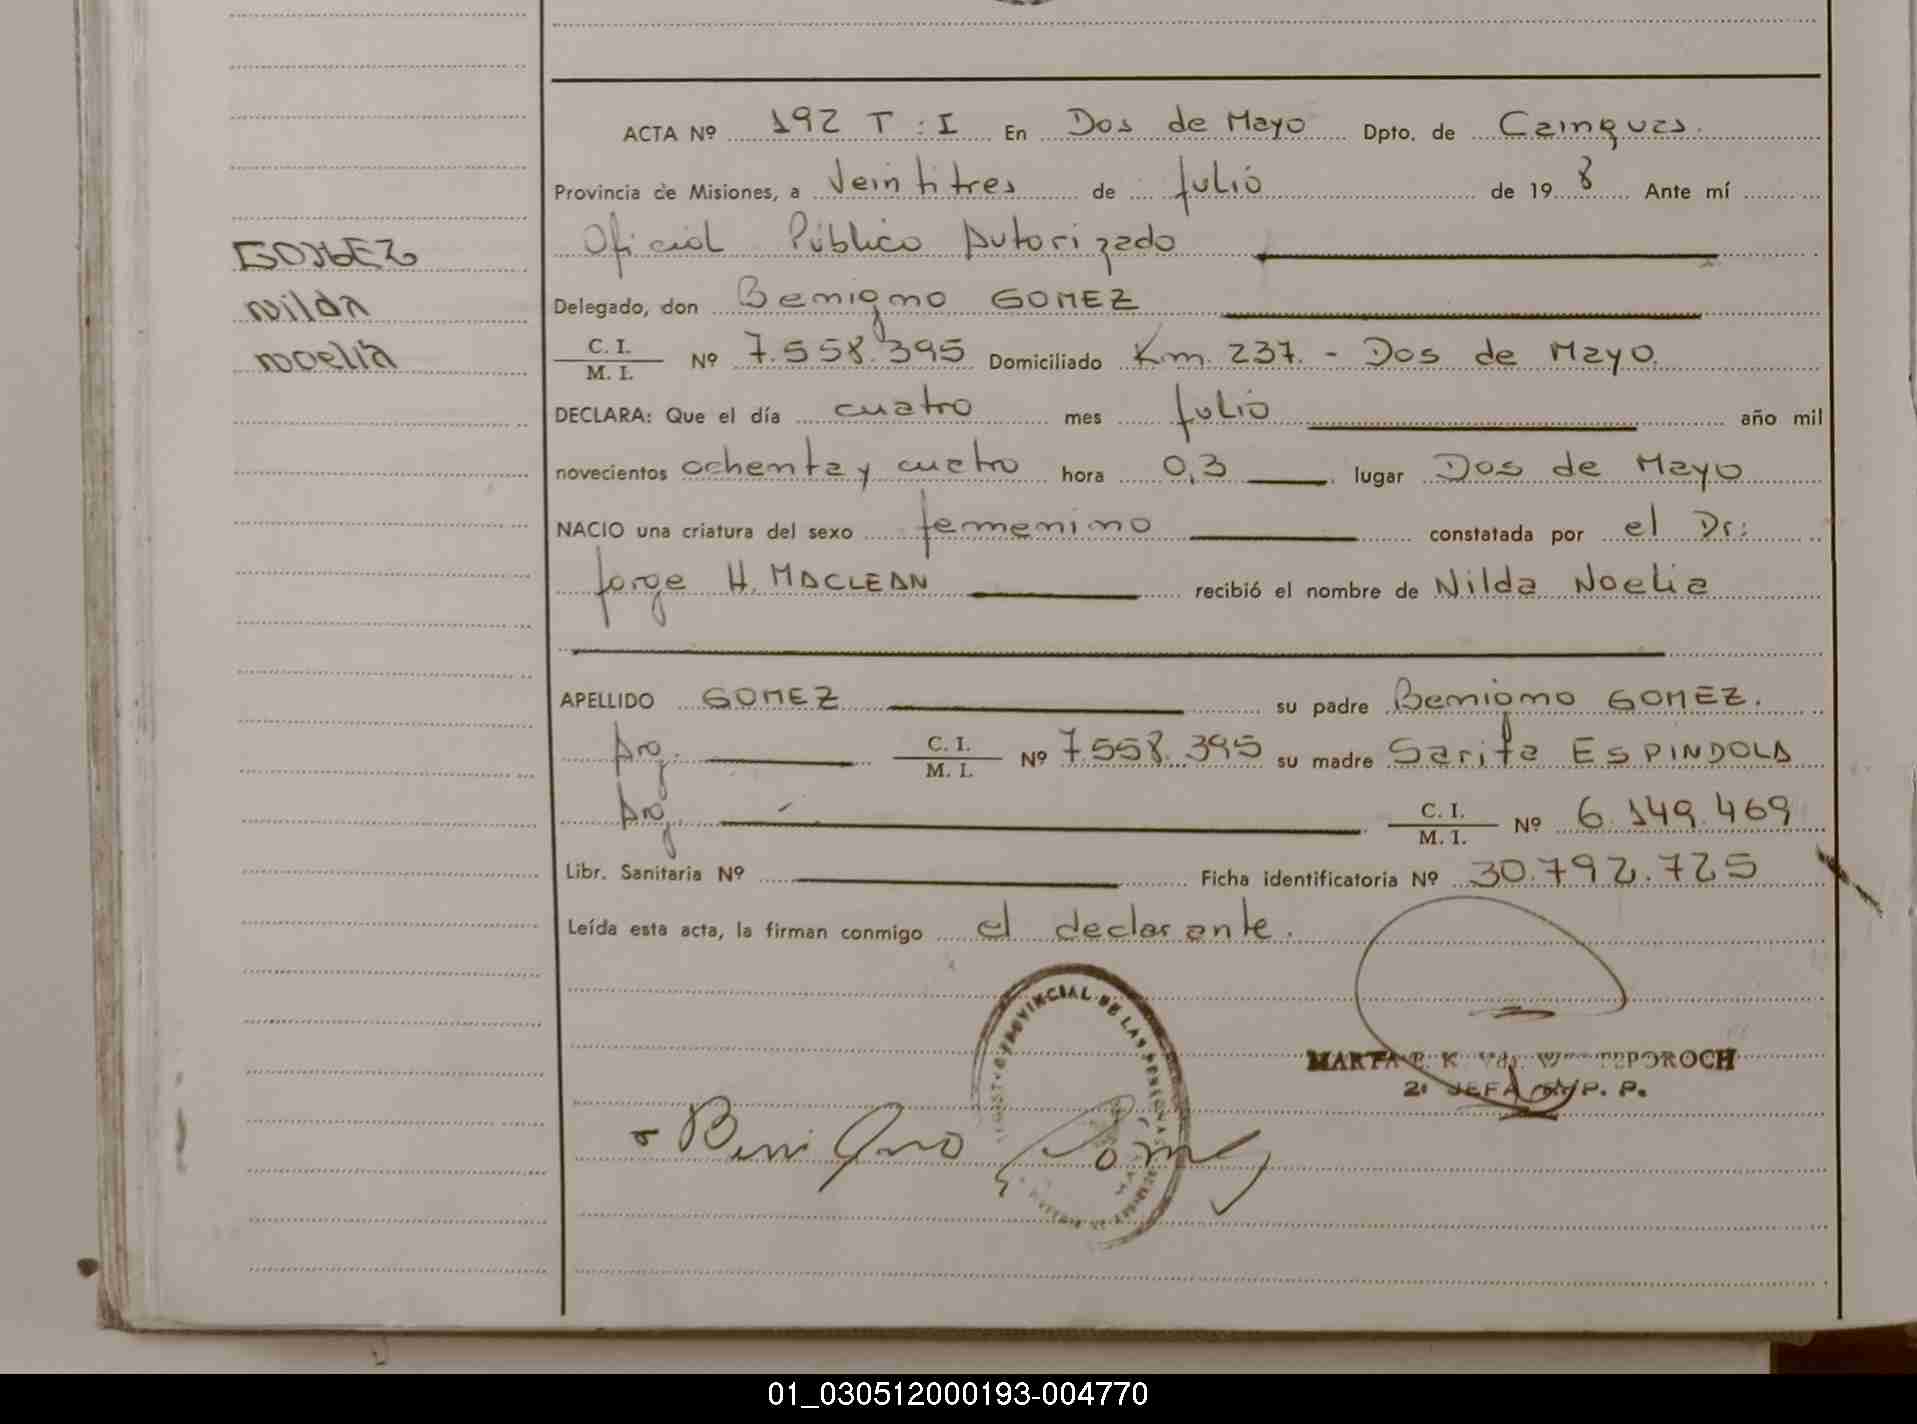 ACTA Nº 192 T : I En Dos de Mayo Dpto. de Cainguas.
Provincia de Misiones, a Veintitres de Julio de 19 8 Ante mí
Oficial Público Autorizado
GOMEZ
Nilda
Noelia
Delegado, don Benigno GOMEZ
C. I.
M. I. Nº 7.558.395 Domiciliado Km. 237. - Dos de Mayo.
DECLARA: Que el día cuatro mes Julio año mil
novecientos ochenta y cuatro hora 0,3 lugar Dos de Mayo
NACIO una criatura del sexo femenino constatada por el Dr:
Jorge H. MACLEAN recibió el nombre de Nilda Noelia
APELLIDO GOMEZ su padre Benigno GOMEZ.
Arg. C. I.
M. I. Nº 7.558.395 su madre Sarita ESPINDOLA
Arg. C. I.
M. I. Nº 6.149.469
Libr. Sanitaria Nº Ficha identificatoria Nº 30.792.725
Leída esta acta, la firman conmigo el declarante.
PROVINCIAL DE LAS PERSONAS
MARTA E. K. Vda. POROCH
2ª JEFA R. P. P.
Benigno Gomez
01_030512000193-004770